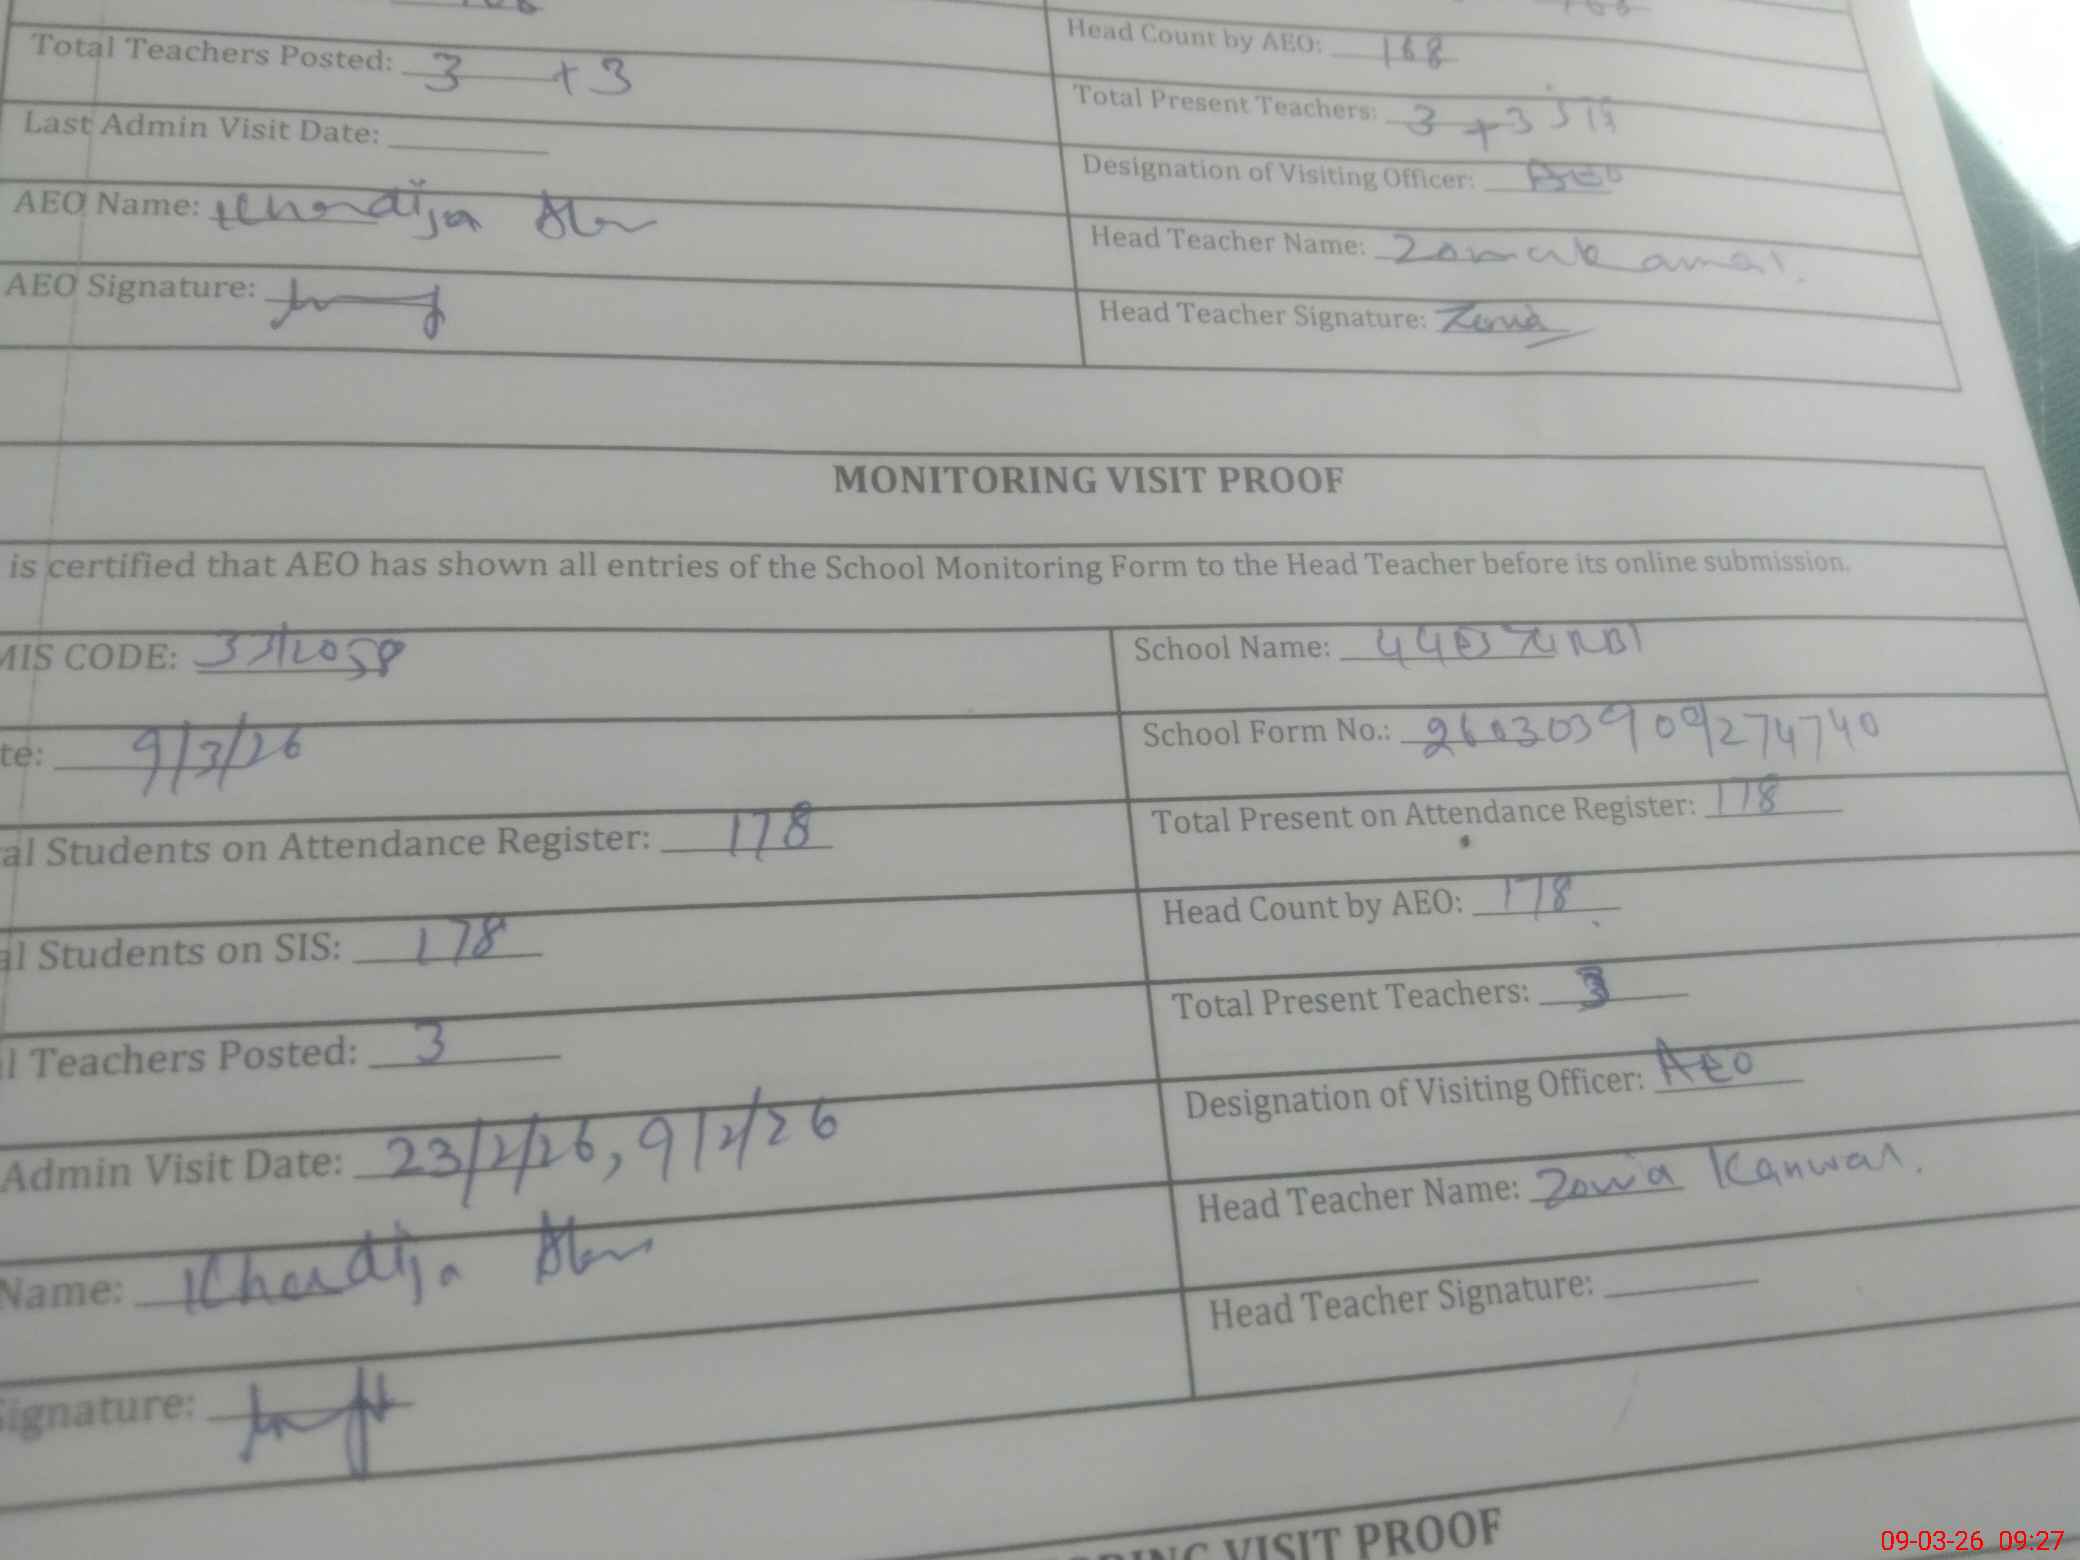 Total Teachers Posted: 3 + 3
Head Count by AEO: 168
Total Present Teachers: 3 + 3
Last Admin Visit Date:
Designation of Visiting Officer: AEO
AEO Name: Khandija
Head Teacher Name:
AEO Signature:
Head Teacher Signature: Zonia
MONITORING VISIT PROOF
is certified that AEO has shown all entries of the School Monitoring Form to the Head Teacher before its online submission.
MIS CODE:
School Name:
te: 9/3/26
School Form No.: 260303909274740
al Students on Attendance Register: 178
Total Present on Attendance Register: 178
al Students on SIS: 178
Head Count by AEO: 178
l Teachers Posted: 3
Total Present Teachers: 3
Admin Visit Date: 23/2/26, 9/2/26
Designation of Visiting Officer: AEO
Name: Khandija
Head Teacher Name: Zonia Kanwal.
Signature:
Head Teacher Signature:
ORING VISIT PROOF
09-03-26 09:27